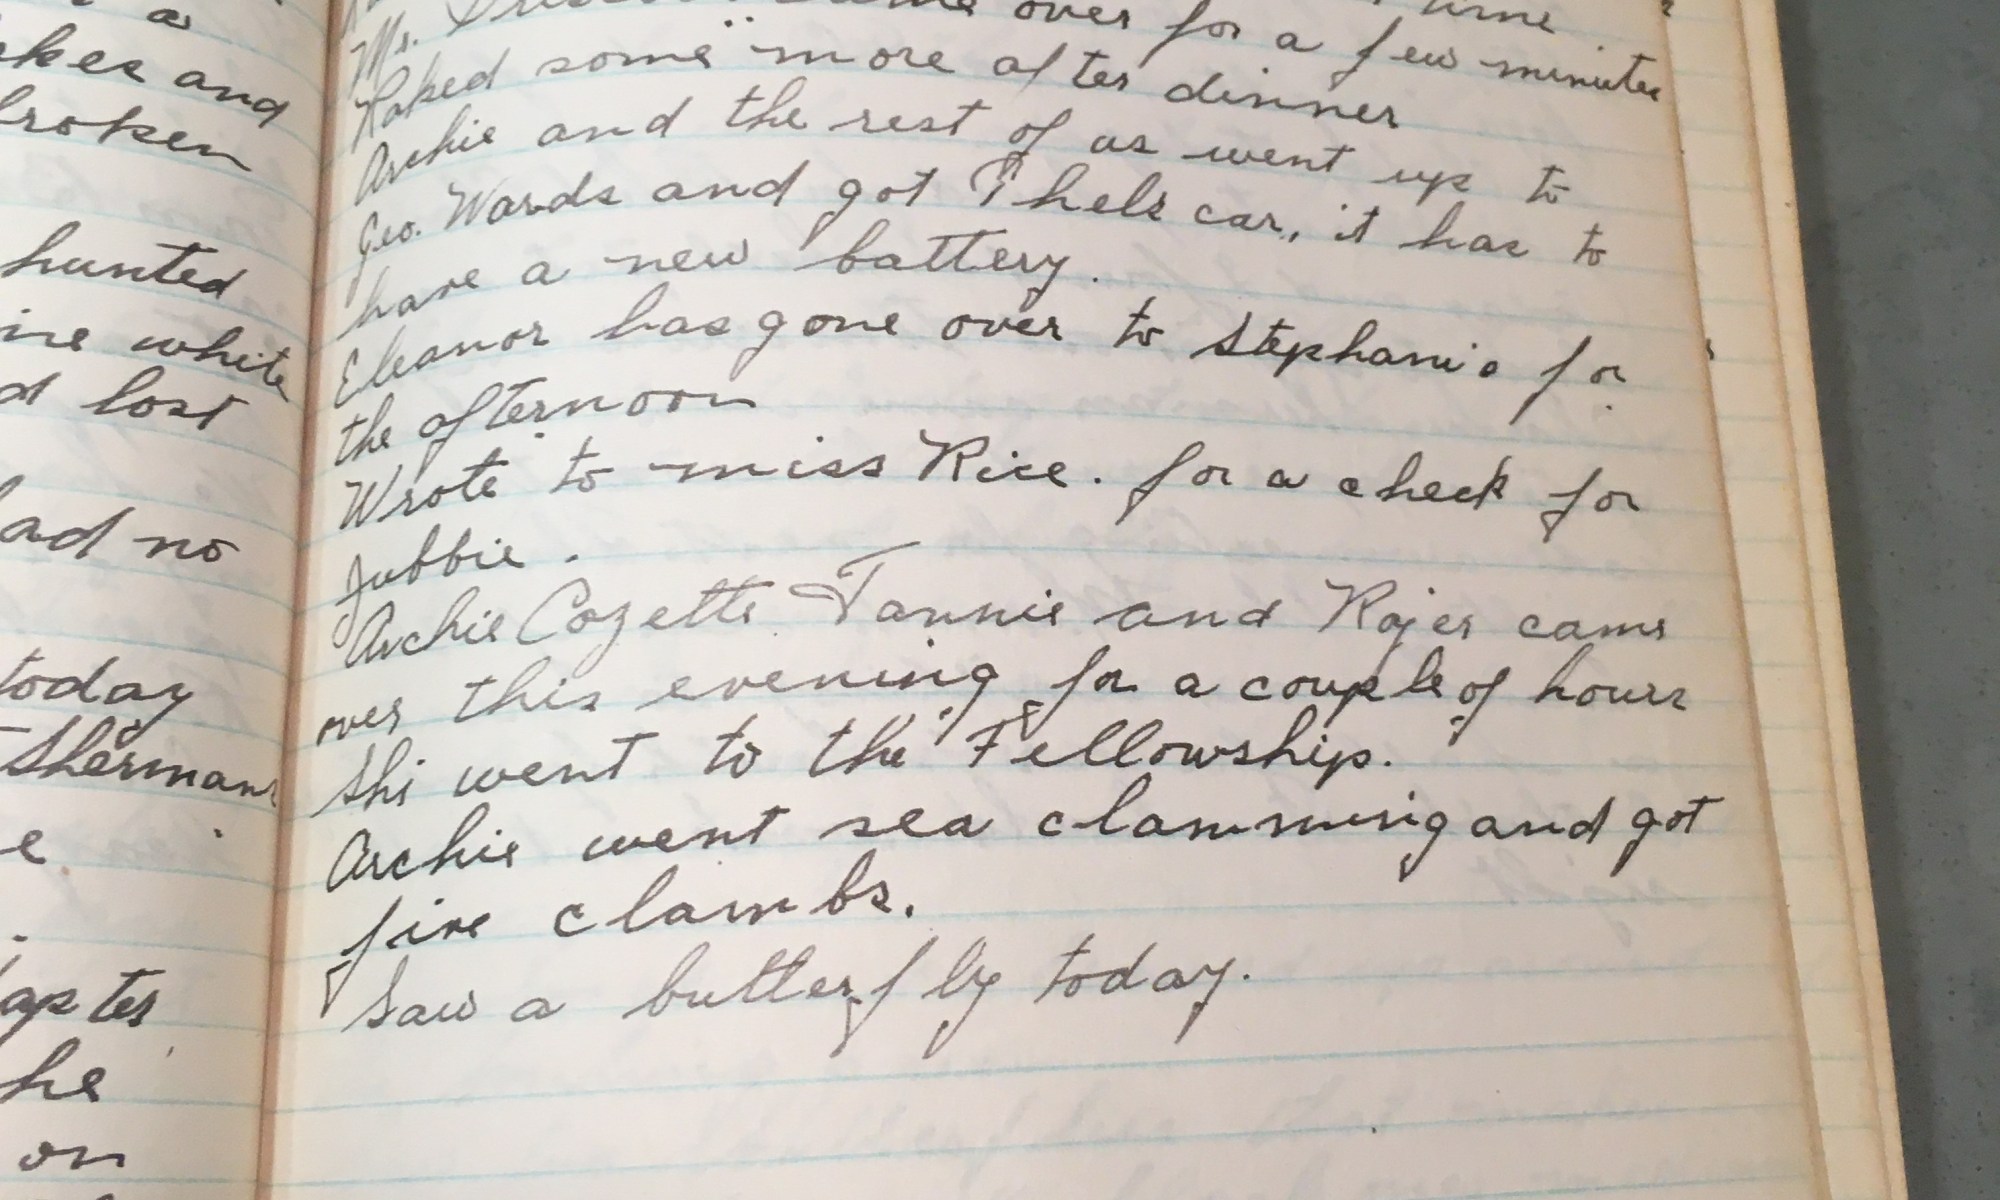 a
akes and
broken
hunted
ine white
d lost
ad no
today
Shermans
e
apter
he
on
time
Mr. came over for a few minutes
Raked some more after dinner
Archie and the rest of us went up to
Geo. Wards and got Thels car, it has to
have a new battery.
Eleanor has gone over to Stephanie for
the afternoon
Wrote to miss Rice. for a check for
Jubbie.
Archie Cozette Fannie and Rojer came
over this evening for a couple of hours
Shi went to the Fellowship.
Archie went sea clamming and got
five clambs.
Saw a butterfly today.